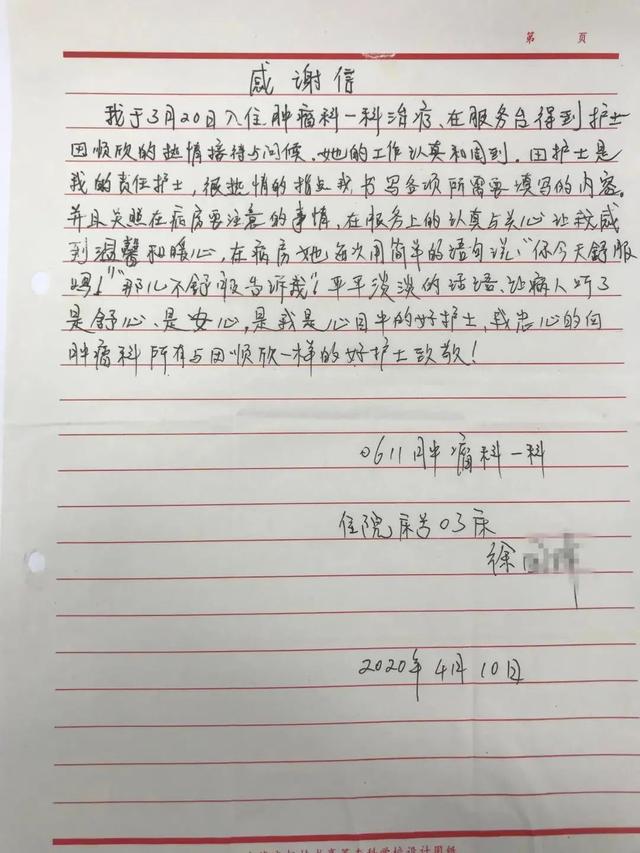 第 页
感谢信
我于3月20日入住肿瘤科一科治疗、在服务台得到护士
田顺欣的热情接待与问候、她的工作认真和周到.田护士是
我的责任护士，很热情的指点我书写各项所需要填写的内容。
并且关照在病房要注意的事情，在服务上的认真与关心让我感
到温馨和暖心，在病房她每次用简单的语句说："你今天舒服
吗！""那儿不舒服告诉我"！平平淡淡的话语、让病人听了
是舒心、是安心，是我是心目中的好护士，我忠心的向
肿瘤科所有与田顺欣一样的好护士致敬！
0611肿瘤科一科
住院床号03床
徐
2020年4月10日